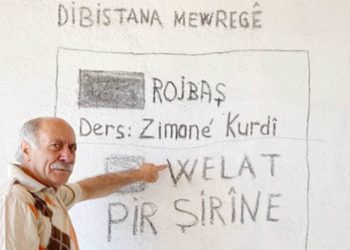 DIBISTANA MEWREGÊ
ROJBAŞ
Ders: Zimanê Kurdî
WELAT
PIR ŞIRÎNE